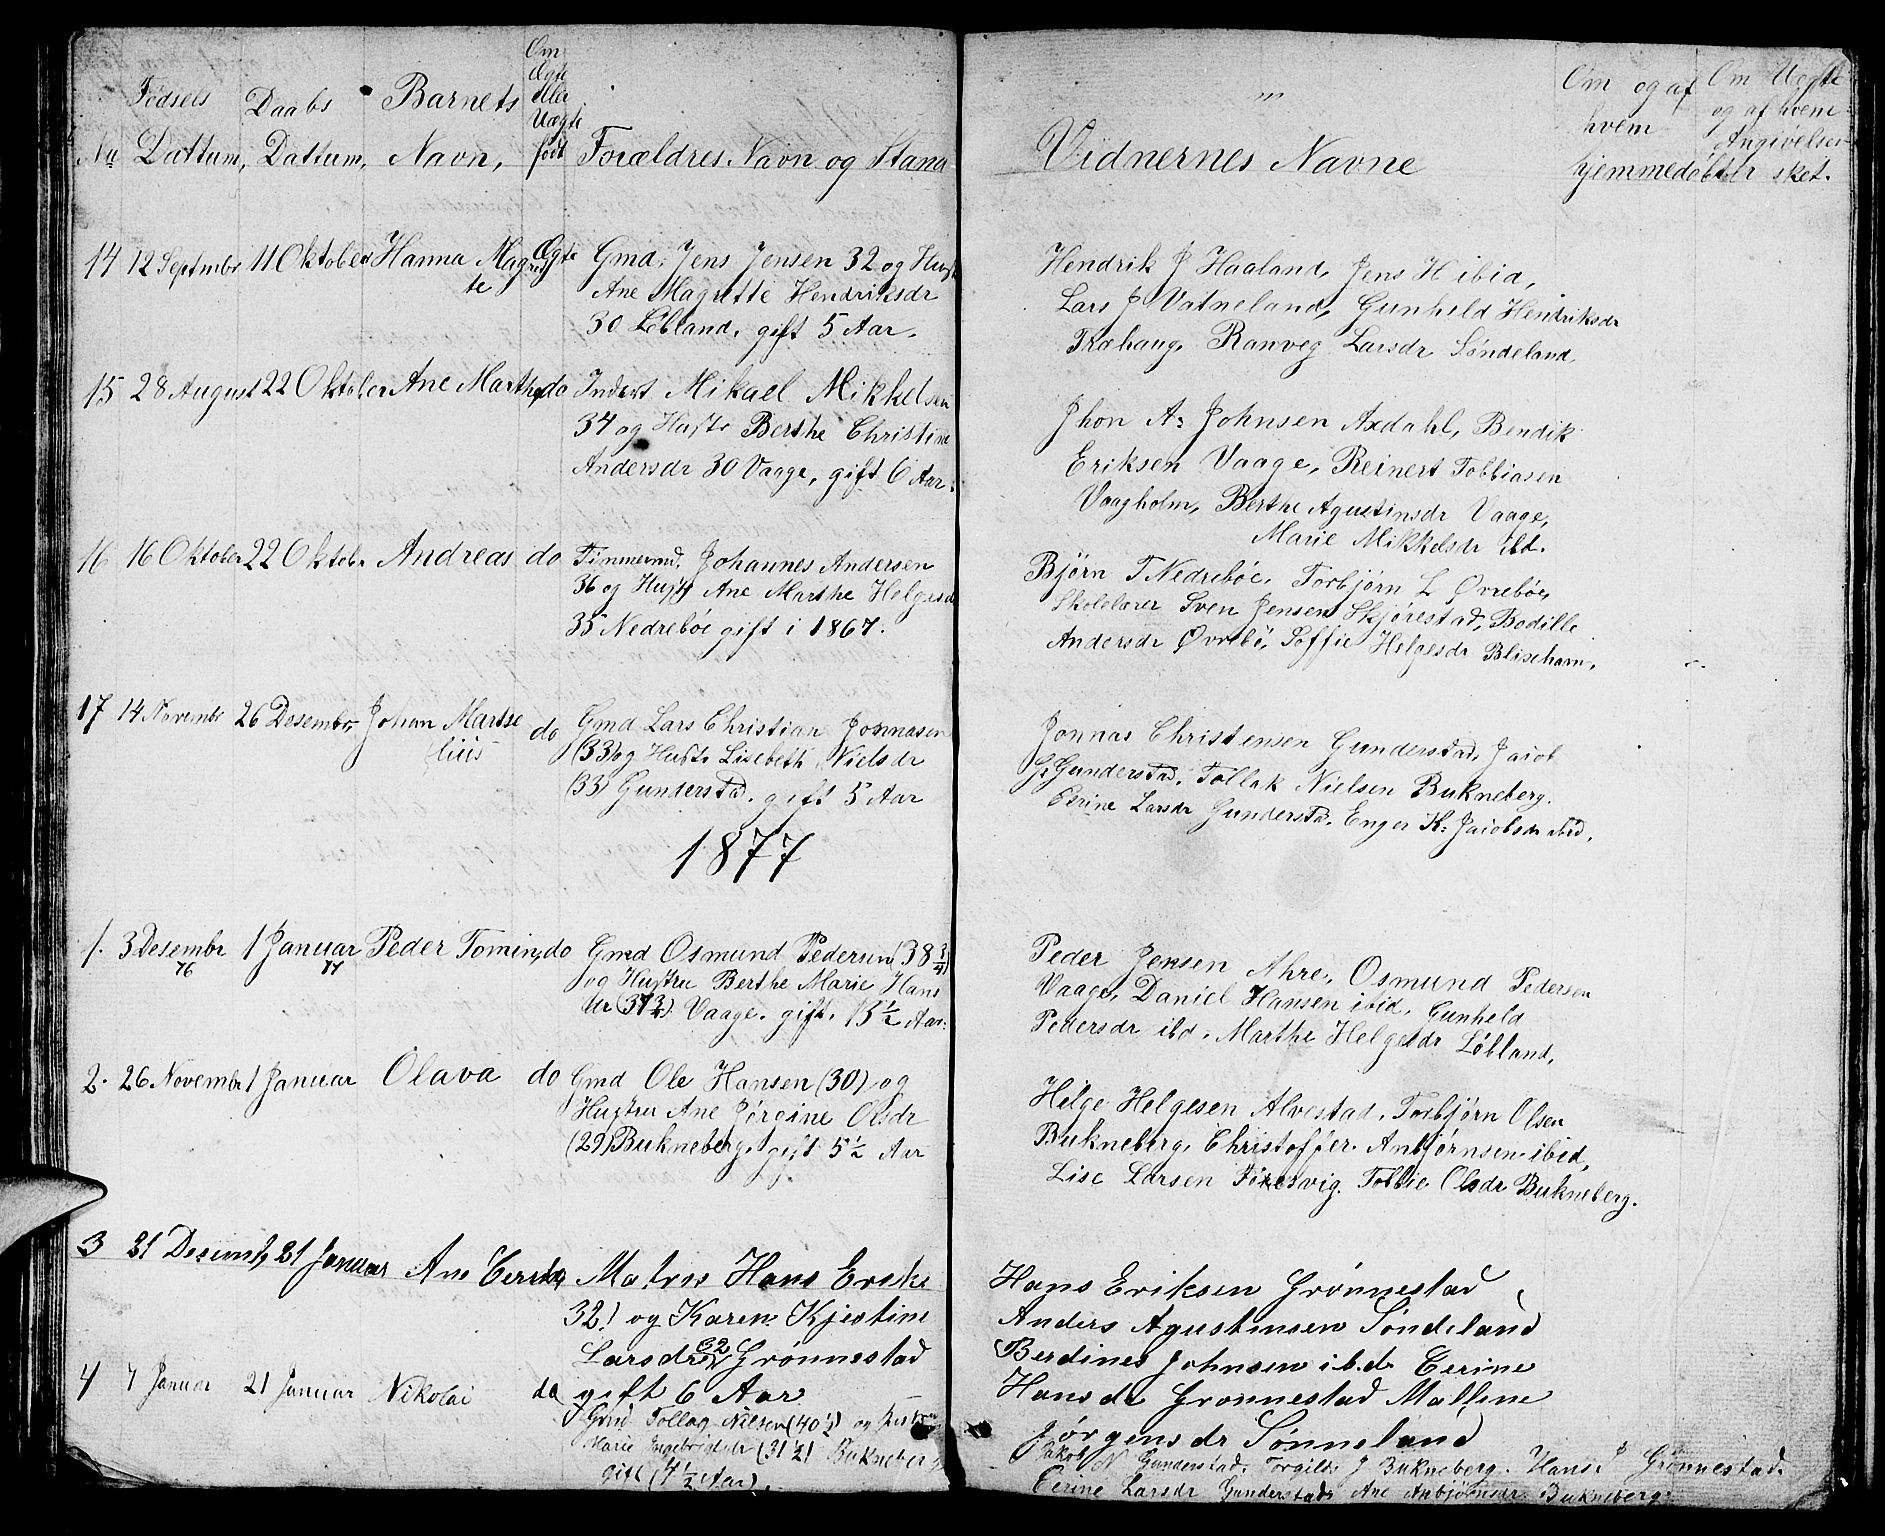 No Fødsels Dattum, Daabs Dattum, Barnets Navn, Om Ægte eller Uægte født Forældres Navn og Stand
Vidnernes Navne Om og af hvem hjemmedøbt Om Uægte og af hvem Angivelsen er sket.
14 12 Septmbr 11 Oktober Hanna Magret Ægte Gmd. Jens Jensen 32 og Hust
te Ane Magrette Hendriksdr
30 Løbland, gift 5 Aar.
Hendrik J Haaland, Jens H ibid,
Lars J Vatneland, Gunheld Hendriksdr
Træhaug, Ranveg Larsdr Søndeland,
15 28 August 22 Oktober Ane Marthe do Inderst Mikael Mikkelsen
34 og Hustr Berthe Christine
Andersdr 30 Vaage, gift 6 Aar.
Jhon A: Johnsen Axdahl, Bendik
Eriksen Vaage, Reinert Tobbiasen
Vaagholm, Berthe Agustinsdr Vaage,
Marie Mikkelsdr ibd.
16 16 Oktober 22 Oktobr Andreas do Timmermd. Johannes Andersen
36 og Hust Ane Marthe Helgesd
35 Nedrebøe gift i 1867.
Bjørn T Nedrebøe, Torbjørn L Øvrebøe,
Skolelærer Sven Jensen Skjørestad, Bodille
Andersdr Øvrebø, Soffie Helgesdr Blixhavn.
17 14 Novembr 26 Desembr, Johan Martse do Gmd Lars Christian Jonnasen
lius (33) og Hustr Lisebeth Nielsdr
(33) Gunderstad. gift 5 Aar
Jonnas Christensen Gunderstad, Jacob
G: Gunderstad, Tollak Nielsen Bukneberg.
Eerine Larsdr Gunderstad. Enger K: Jacobsdr ibid.
1877
1. 3 Desembr 1 Januar Peder Tomin, do Gmd Osmund Pedersen (38 3/4)
76 77 og Hustru Berthe Marie Hans
dr Vaage. gift. 15 1/2 Aar.
Peder Jensen Ahre, Osmund Pedersen
Vaage, Daniel Hansen ibid, Gunheld
Pedersdr ibd. Marthe Helgesdr Løbland,
2. 26 Novembr 1 Januar Olava do Gmd Ole Hansen (30) og
Hustru Ane Jørgine Olsdr
(29) Bukneberg, gift 5 1/2 Aar
Helge Helgesen Alvestad, Torbjørn Olsen
Bukneberg, Christoffer Anbjørnsen ibid,
Lise Larsen Føresvig. Tobbie Olsdr Bukneberg.
3 21 Desemb, 21 Januar Ane do Matros Hans
32) og Karen Kjestine
Larsdr 32 Grønnestad
gift 6 Aar
Hans Eriksen Grønnestad
Anders Agustinsen Søndeland
Berdines Johnsen ibd. Eerine
Hansdr Grønnestad Malline
Jørgensdr Sønneland
4 7 Januar 21 Januar Nikolai do Gmd Tollag Nilsen (40 1/2) og
Marie Ingebrigtsdr (31 1/2) Bukneberg
gift (4 1/2 Aar).
Jakob N Gunderstad, Torgils J Bukneberg. Hans J Grønnestad.
Eerine Larsdr Gunderstad, Ane Anbjørnsdr Bukneberg.